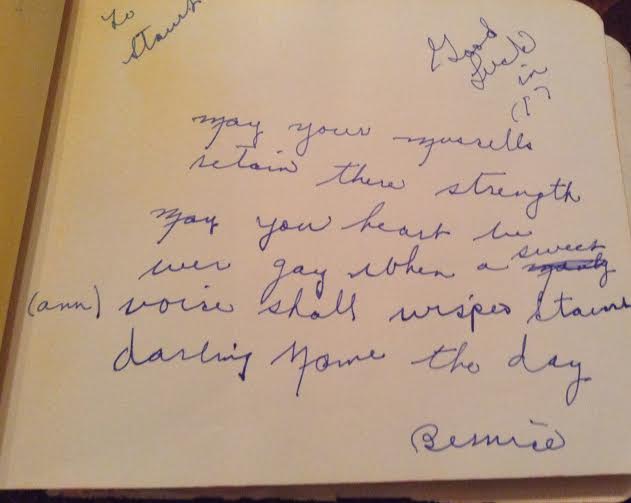 To
Good
Luck
in
(?)
may your musrells
retain there strength
May you heart be
ever gay when a sweet
(ann) voise shall wisper
darling Name the day
Bernice